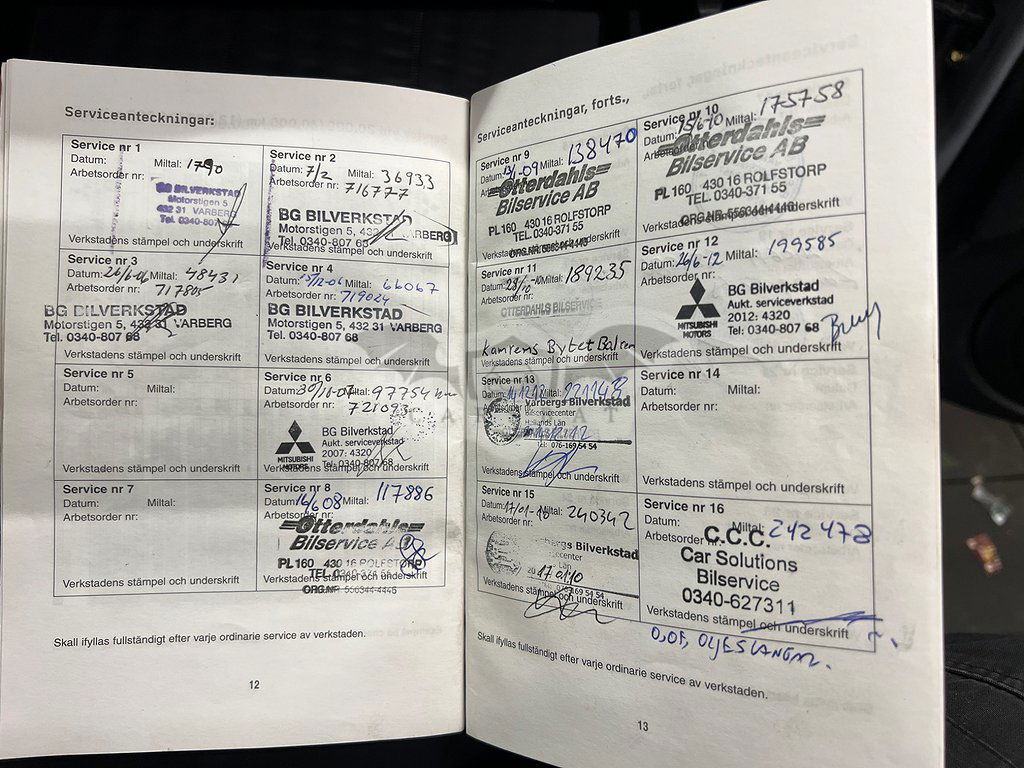 Serviceanteckningar:
Service nr 1
Datum: Miltal: 1790
Arbetsorder nr:
BG BILVERKSTAD
Motorstigen 5
432 31 VARBERG
Tel. 0340-807
Verkstadens stämpel och underskrift
Service nr 2
Datum: 7/2 Miltal: 36933
Arbetsorder nr: 716777
BG BILVERKSTAD
Motorstigen 5, 432 VARBERG
Tel. 0340-807 68
Verkstadens stämpel och underskrift
Service nr 3
Datum: Miltal: 48431
Arbetsorder nr: 717805
BG BILVERKSTAD
Motorstigen 5, 432 31 VARBERG
Tel. 0340-807 68
Verkstadens stämpel och underskrift
Service nr 4
Datum: Miltal: 66067
Arbetsorder nr: 719024
BG BILVERKSTAD
Motorstigen 5, 432 31 VARBERG
Tel. 0340-807 68
Verkstadens stämpel och underskrift
Service nr 5
Datum: Miltal:
Arbetsorder nr:
Verkstadens stämpel och underskrift
Service nr 6
Datum: 30/10-07 Miltal: 97754
Arbetsorder nr: 721093
MITSUBISHI MOTORS
BG Bilverkstad
Aukt. serviceverkstad
2007: 4320
Tel. 0340-807 68
Verkstadens stämpel och underskrift
Service nr 7
Datum: Miltal:
Arbetsorder nr:
Verkstadens stämpel och underskrift
Service nr 8
Datum: 16/608 Miltal: 117886
Arbetsorder nr:
Otterdahls
Bilservice AB
PL 160 430 16 ROLFSTORP
TEL. 0340-371 55
ORG.NR 556344-4446
Verkstadens stämpel och underskrift
Skall ifyllas fullständigt efter varje ordinarie service av verkstaden.
12
Serviceanteckningar, forts.,
Service nr 9
Datum: Miltal: 138470
Otterdahls
Bilservice AB
PL 160 430 16 ROLFSTORP
TEL. 0340-371 55
ORG.NR. 556344-4446
Verkstadens stämpel och underskrift
Service nr 10
Datum: 15/6-10 Miltal: 175758
Arbetsorder nr:
Otterdahls
Bilservice AB
PL 160 430 16 ROLFSTORP
TEL. 0340-371 55
ORG.NR. 556344-4446
Verkstadens stämpel och underskrift
Service nr 11
Datum: Miltal: 189235
Arbetsorder nr:
OTTERDAHLS BILSERVICE
Kamrems Bytet
Verkstadens stämpel och underskrift
Service nr 12
Datum: 26/6-12 Miltal: 199585
Arbetsorder nr:
MITSUBISHI MOTORS
BG Bilverkstad
Aukt. serviceverkstad
2012: 4320
Tel. 0340-807 68
Verkstadens stämpel och underskrift
Service nr 13
Datum: Miltal:
Arbetsorder nr:
Varbergs Bilverkstad
Bilservicecenter
Hallands Län
Tel: 076-169 54 54
Verkstadens stämpel och underskrift
Service nr 14
Datum: Miltal:
Arbetsorder nr:
Verkstadens stämpel och underskrift
Service nr 15
Datum: 17/01-10 Miltal: 240342
Arbetsorder nr:
Bilverkstad
Län
17 01 10
076-169 54 54
Verkstadens stämpel och underskrift
Service nr 16
Datum: Miltal: 242478
Arbetsorder nr:
C.C.C.
Car Solutions
Bilservice
0340-627311
Verkstadens stämpel och underskrift
O,OF, OLJESLANGAR.
Skall ifyllas fullständigt efter varje ordinarie service av verkstaden.
13